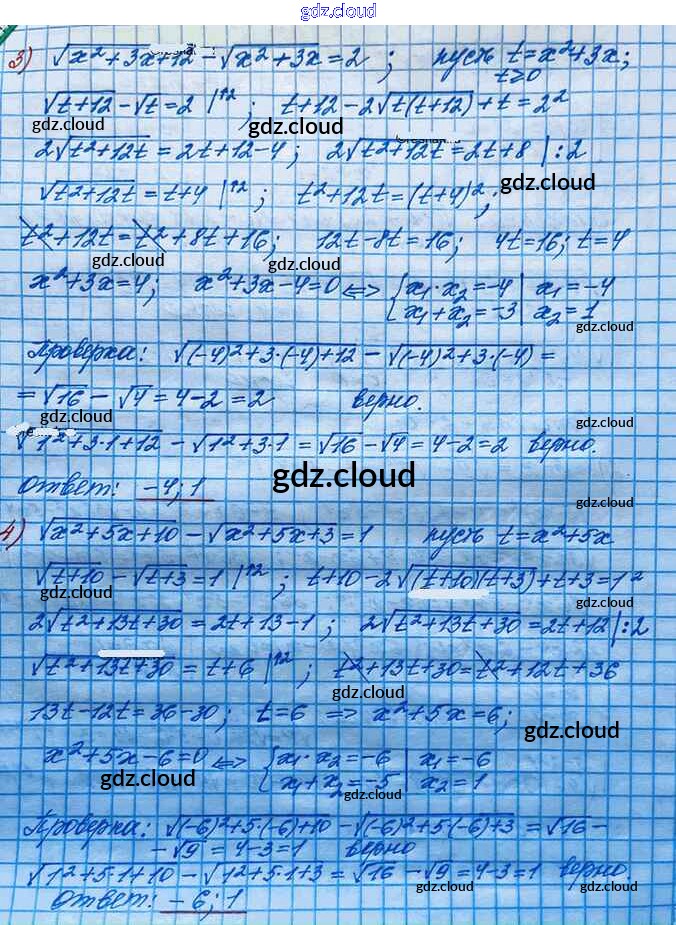 gdz.cloud
3) √(x²+3x+12) - √(x²+3x) = 2 ; пусть t=x²+3x;
t≥0
√(t+12) - √t = 2 |↑² ; t+12-2√(t(t+12))+t=2²
gdz.cloud gdz.cloud
2√(t²+12t) = 2t+12-4 ; 2√(t²+12t) = 2t+8 |:2
gdz.cloud
√(t²+12t) = t+4 |↑² ; t²+12t=(t+4)²;
t²+12t=t²+8t+16; 12t-8t=16; 4t=16; t=4
gdz.cloud gdz.cloud
x²+3x=4; x²+3x-4=0 <=> { x₁·x₂=-4 | x₁=-4
x₁+x₂=-3 | x₂=1
gdz.cloud
Проверка: √((-4)²+3·(-4)+12) - √((-4)²+3·(-4)) =
= √16 - √4 = 4-2=2 верно.
gdz.cloud gdz.cloud
√(1²+3·1+12) - √(1²+3·1) = √16-√4=4-2=2 верно.
Ответ: -4; 1
gdz.cloud gdz.cloud
4) √(x²+5x+10) - √(x²+5x+3) = 1 пусть t=x²+5x
√(t+10) - √(t+3) = 1 |↑² ; t+10-2√((t+10)(t+3))+t+3=1²
gdz.cloud gdz.cloud
2√(t²+13t+30) = 2t+13-1 ; 2√(t²+13t+30) = 2t+12 |:2
√(t²+13t+30) = t+6 |↑² ; t²+13t+30=t²+12t+36
gdz.cloud
13t-12t=36-30; t=6 => x²+5x=6;
gdz.cloud
x²+5x-6=0 <=> { x₁·x₂=-6 | x₁=-6
x₁+x₂=-5 | x₂=1
gdz.cloud gdz.cloud
Проверка: √((-6)²+5(-6)+10) - √((-6)²+5(-6)+3) = √16 -
- √9 = 4-3=1 верно
√(1²+5·1+10) - √(1²+5·1+3) = √16 - √9=4-3=1 верно.
gdz.cloud gdz.cloud
Ответ: -6; 1
gdz.cloud